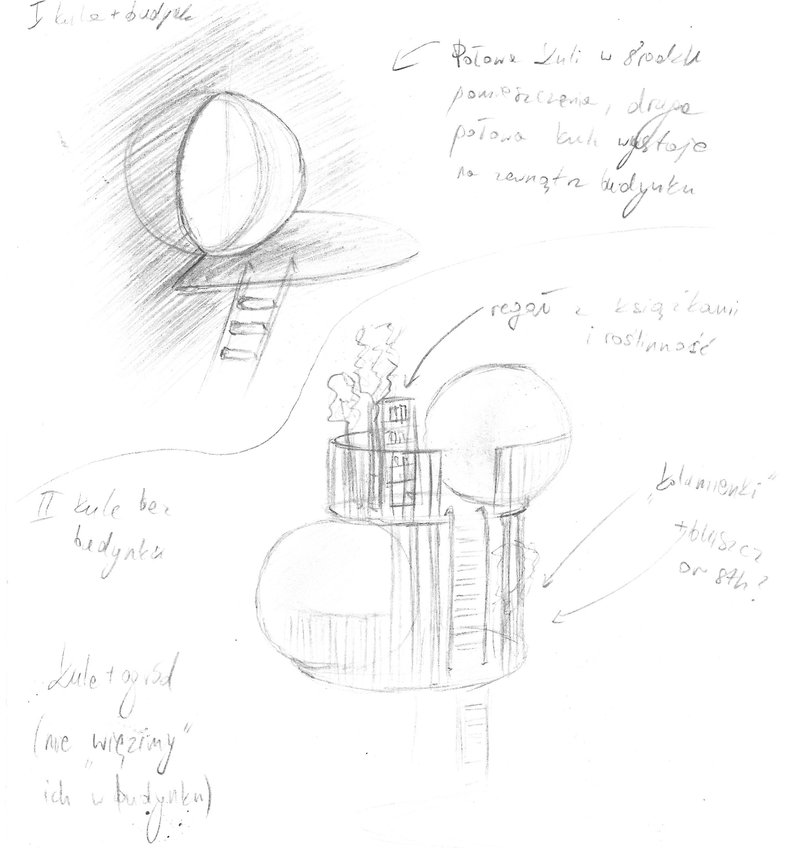 I kule + budynek
Połowa kuli w środku
pomieszczenia, druga
połowa kuli wystaje
na zewnątrz budynku
regał z książkami
i roślinność
II kule bez
budynku
"kolumienki"
+ bluszcz
or sth?
kule + ogród
(nie "więzimy"
ich w budynku)